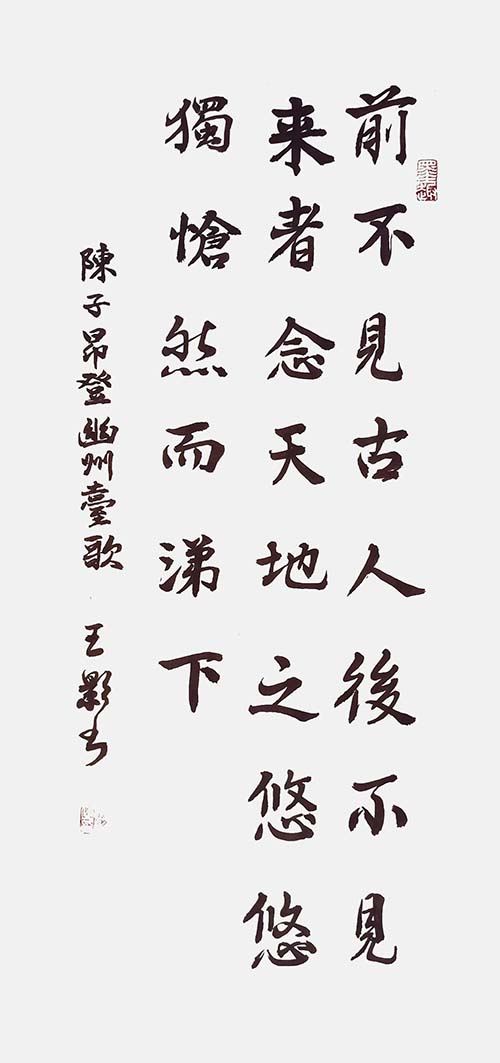 前不見古人後不見
来者念天地之悠悠
獨愴然而涕下
陳子昂登幽州臺歌 王影书